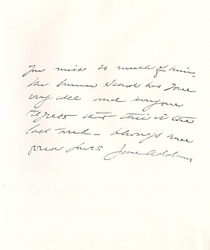 You miss so much of him.
The Summer School has gone
very well and everyone
agrees that this is the
last week — always
yours Jane Addams